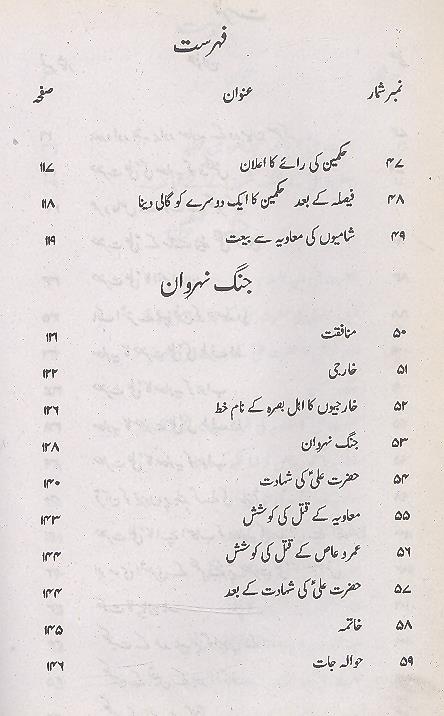 فہرست
نمبر شمار عنوان صفحہ
۴۷ حکمین کی رائے کا اعلان ۱۱۷
۴۸ فیصلہ کے بعد حکمین کا ایک دوسرے کو گالی دینا ۱۱۸
۴۹ شامیوں کی معاویہ سے بیعت ۱۱۹
جنگ نہروان
۵۰ منافقت ۱۲۱
۵۱ خارجی ۱۲۲
۵۲ خارجیوں کا اہل بصرہ کے نام خط ۱۲۶
۵۳ جنگ نہروان ۱۲۸
۵۴ حضرت علیؑ کی شہادت ۱۴۰
۵۵ معاویہ کے قتل کی کوشش ۱۴۳
۵۶ عمرو عاص کے قتل کی کوشش ۱۴۴
۵۷ حضرت علیؑ کی شہادت کے بعد ۱۴۴
۵۸ خاتمہ ۱۴۵
۵۹ حوالہ جات ۱۴۶